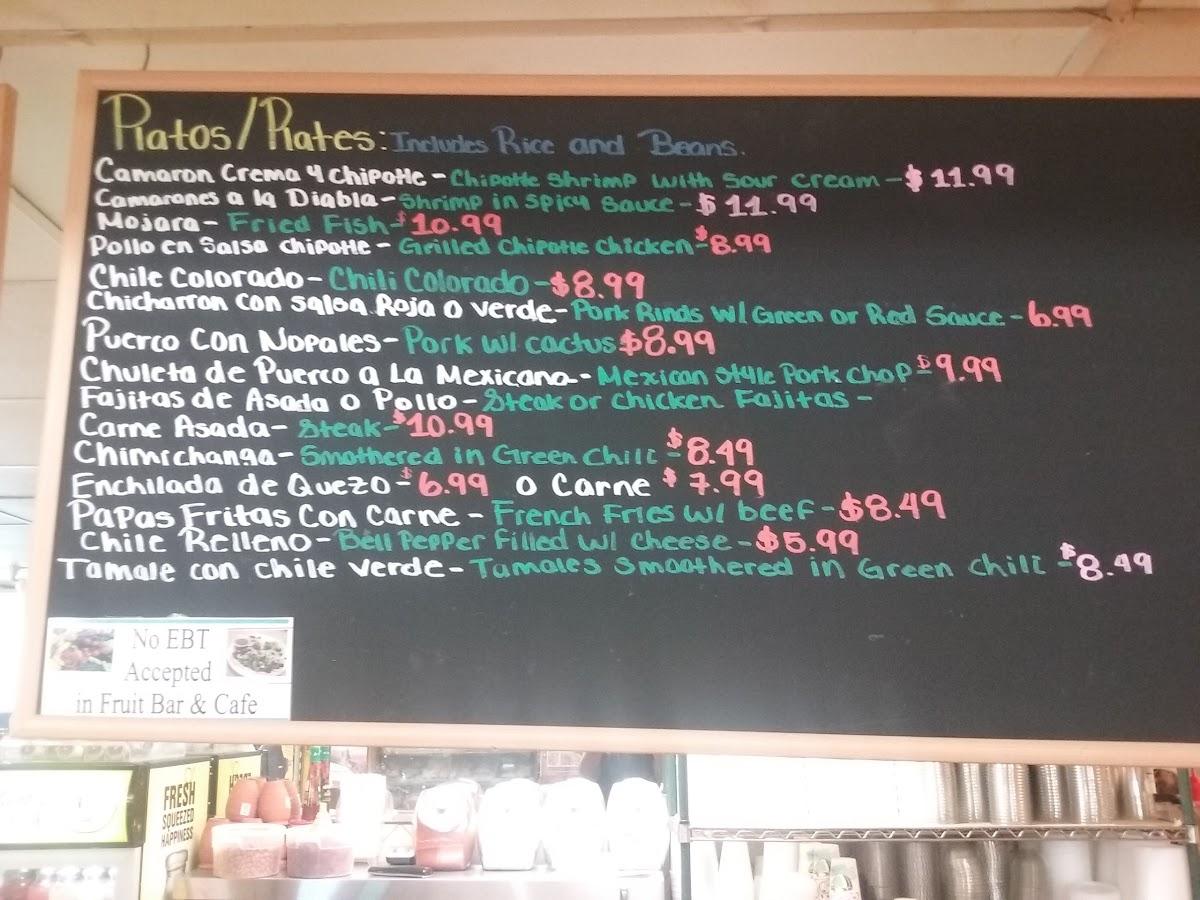 Platos/Plates: Includes Rice and Beans.
Camaron Crema y Chipotle - Chipotle Shrimp with Sour Cream - $11.99
Camarones a la Diabla - Shrimp in Spicy Sauce - $11.99
Mojara - Fried Fish - $10.99
Pollo en Salsa Chipotle - Grilled Chipotle Chicken - $8.99
Chile Colorado - Chili Colorado - $8.99
Chicharron con Salsa Roja o Verde - Pork Rinds w/ Green or Red Sauce - 6.99
Puerco Con Nopales - Pork w/ cactus $8.99
Chuleta de Puerco a La Mexicana - Mexican Style Pork Chop - $9.99
Fajitas de Asada o Pollo - Steak or Chicken Fajitas -
Carne Asada - Steak - $10.99
Chimichanga - Smothered in Green Chili - $8.49
Enchilada de Quezo - $6.99 o Carne $7.99
Papas Fritas Con Carne - French Fries w/ beef - $8.49
Chile Relleno - Bell Pepper Filled w/ Cheese - $5.99
Tamale con Chile Verde - Tamales Smoothered in Green Chili - $8.49
No EBT
Accepted
in Fruit Bar & Cafe
FRESH
SQUEEZED
HAPPINESS